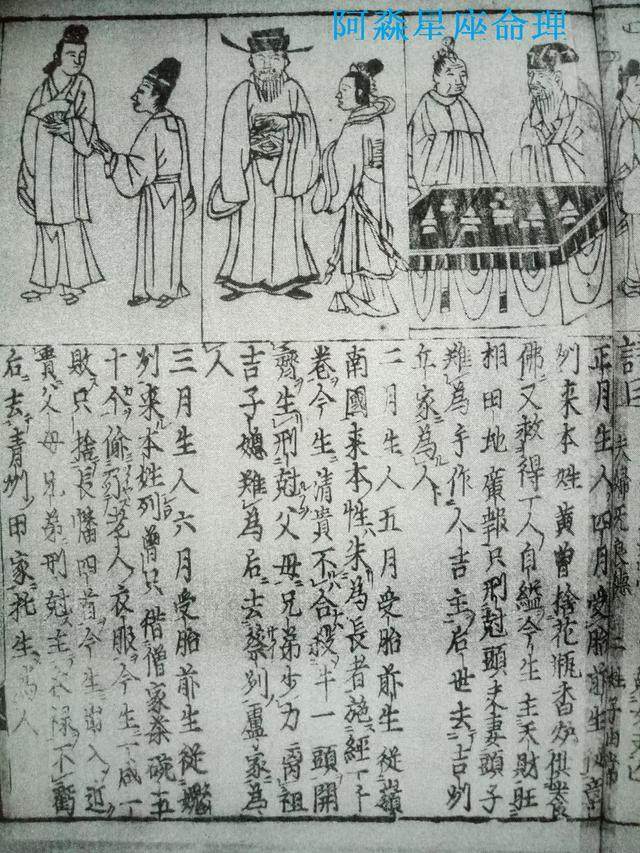 阿淼星座命理
正月生人四月受胎前生
州来本姓黄曽捨花瓶香炉供養
佛又救得一人自縊今生主夫財旺
相田地廣報只刑尅頭夫妻頭子
难為手作人吉主后世去吉州
丘家為人
二月生人五月受胎前生從嶺
南國来本性朱為長者施經一千
卷今生清貴不合投斗一頭開
齋生刑尅父母兄弟少力离祖
吉子媳难為后去蔡州盧家為
人
三月生人六月受胎前生從
州来本姓列曽只借僧家茶碗五
十个偷老人衣服今生
敗只捨長旛四首今生出入近
貴父母兄弟刑尅主衣禄不虧
后去青州田家托生為人